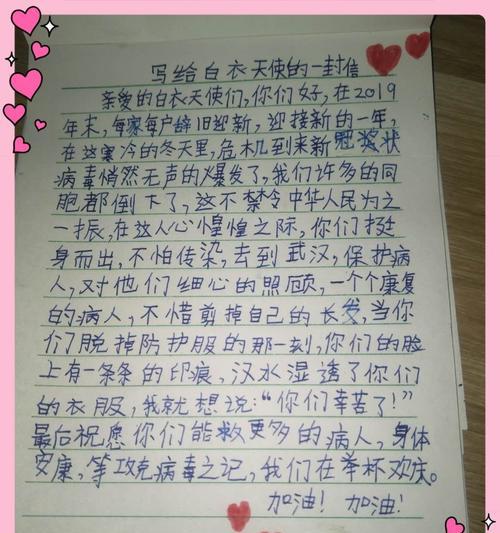 写给白衣天使的一封信
亲爱的白衣天使们,你们好,在2019
年末,每家每户辞旧迎新,迎接新的一年,
在这寒冷的冬天里,危机到来新冠奖状
病毒悄然无声的爆发了,我们许多的同
胞都倒下了,这不禁令中华人民为之
一振,在这人心惶惶之际,你们挺
身而出,不怕传染,去到武汉,保护病
人,对他们细心的照顾,一个个康复
的病人,不惜剪掉自己的长发,当你
们脱掉防护服的那一刻,你们的脸
上有一条条的印痕,汉水湿透了你们
的衣服,我就想说:“你们幸苦了!”
最后祝愿你们能救更多的病人,身体
安康,等攻克病毒之记,我们在举杯欢庆。
加油! 加油!